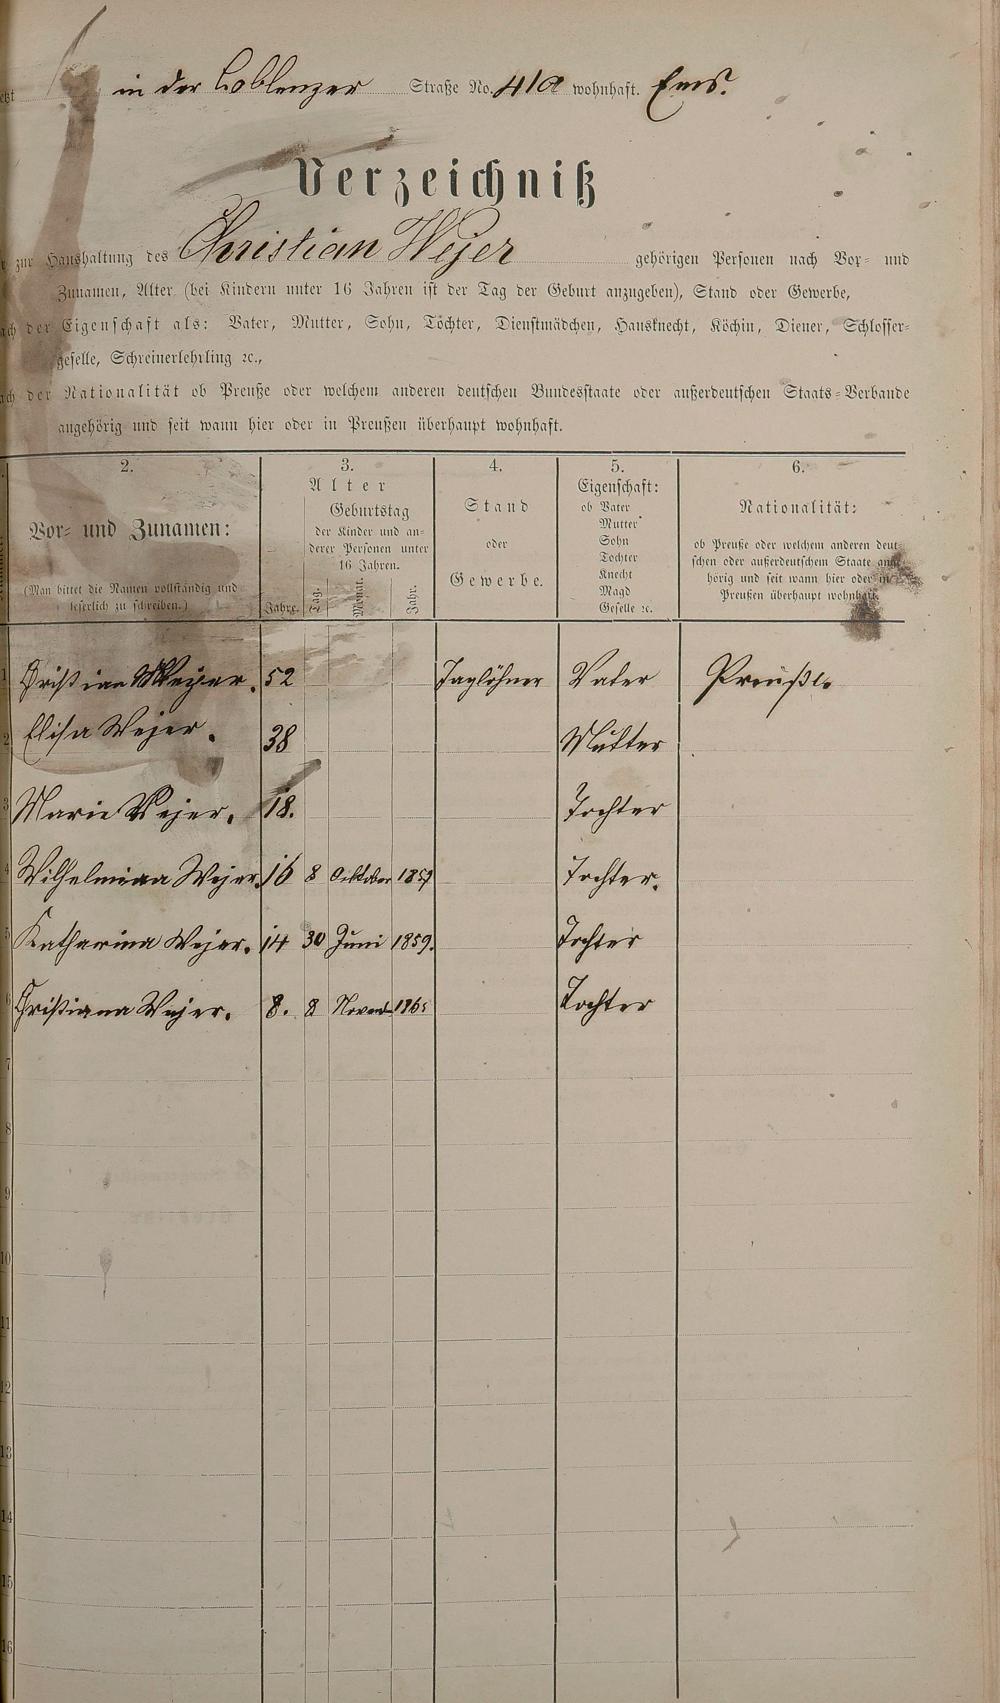 in der Coblenzer Straße No. 41a wohnhaft. Ems.
Verzeichniß
zur Haushaltung des Christian Wejer gehörigen Personen nach Vor- und
Zunamen, Alter (bei Kindern unter 16 Jahren ist der Tag der Geburt anzugeben), Stand oder Gewerbe,
der Eigenschaft als: Vater, Mutter, Sohn, Tochter, Dienstmädchen, Hausknecht, Köchin, Diener, Schlosser-
geselle, Schreinerlehrling ꝛc.,
der Nationalität ob Preuße oder welchem anderen deutschen Bundesstaate oder außerdeutschen Staats-Verbande
angehörig und seit wann hier oder in Preußen überhaupt wohnhaft.
2. 3. 4. 5. 6.
Vor- und Zunamen:
(Man bittet die Namen vollständig und
leserlich zu schreiben.)
Alter
Jahre.
Geburtstag
der Kinder und an-
derer Personen unter
16 Jahren.
Tag. Monat. Jahr.
Stand
oder
Gewerbe.
Eigenschaft:
ob Vater
Mutter
Sohn
Tochter
Knecht
Magd
Geselle ꝛc.
Nationalität:
ob Preuße oder welchem anderen deut-
schen oder außerdeutschem Staate ange-
hörig und seit wann hier oder in
Preußen überhaupt wohnhaft.
1 Christian Wejer. 52 Taglöhner Vater Preuße.
2 Elisa Wejer. 38 Mutter
3 Marie Wejer. 18. Tochter
4 Wilhelmina Wejer. 16 8 Oktober Tochter.
5 Katharina Wejer. 14 30 Juni 1859. Tochter
6 Christiana Wejer. 8. 8 Novemb 1865 Tochter
7
8
9
10
11
12
13
14
15
16